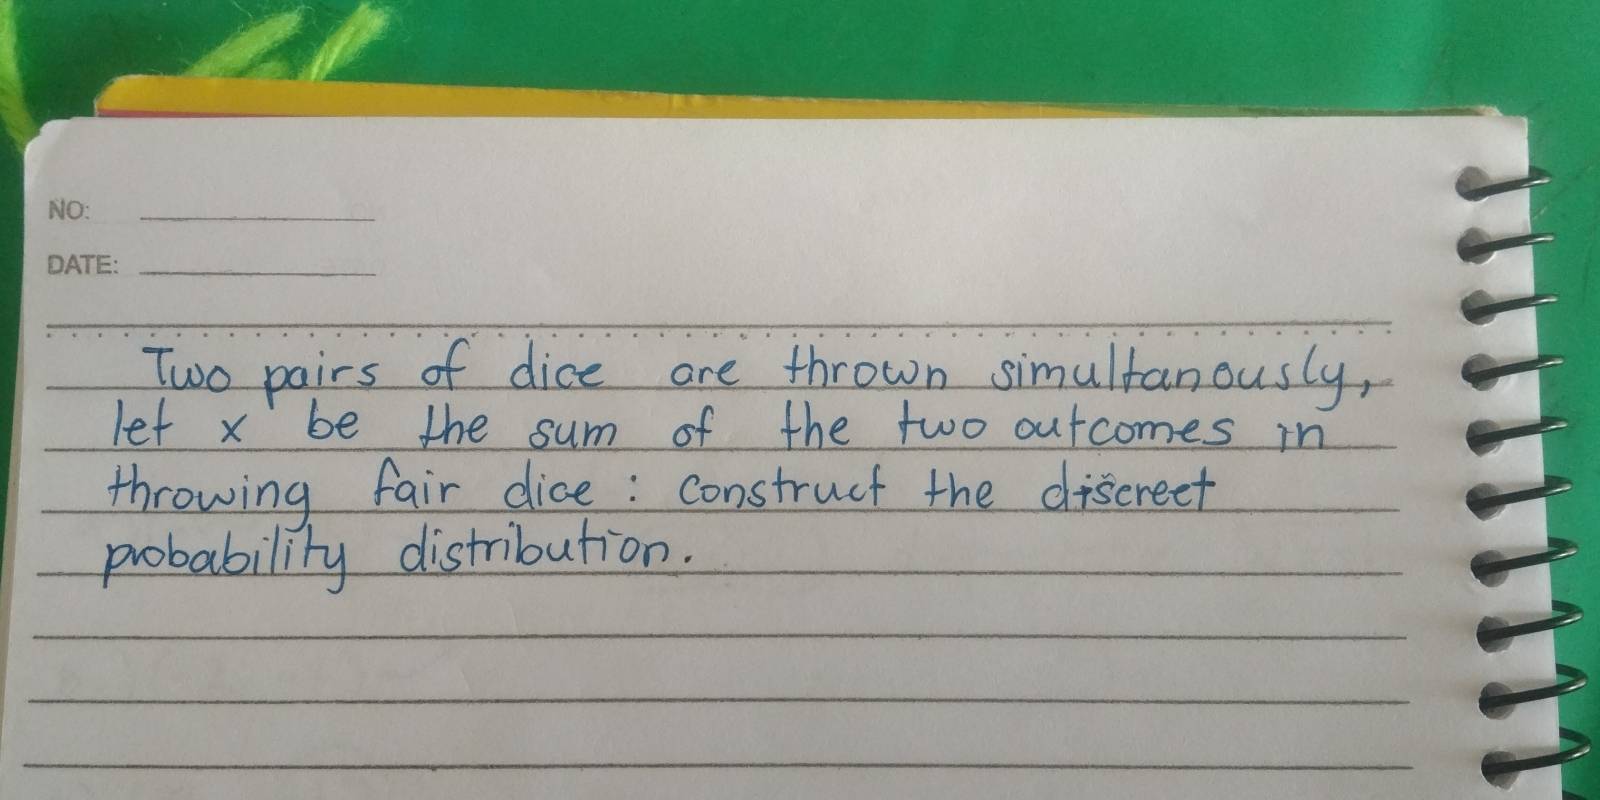 NO:
DATE:
Two pairs of dice are thrown simultanously,
let x be the sum of the two outcomes in
throwing fair dice : construct the discreet
probability distribution.